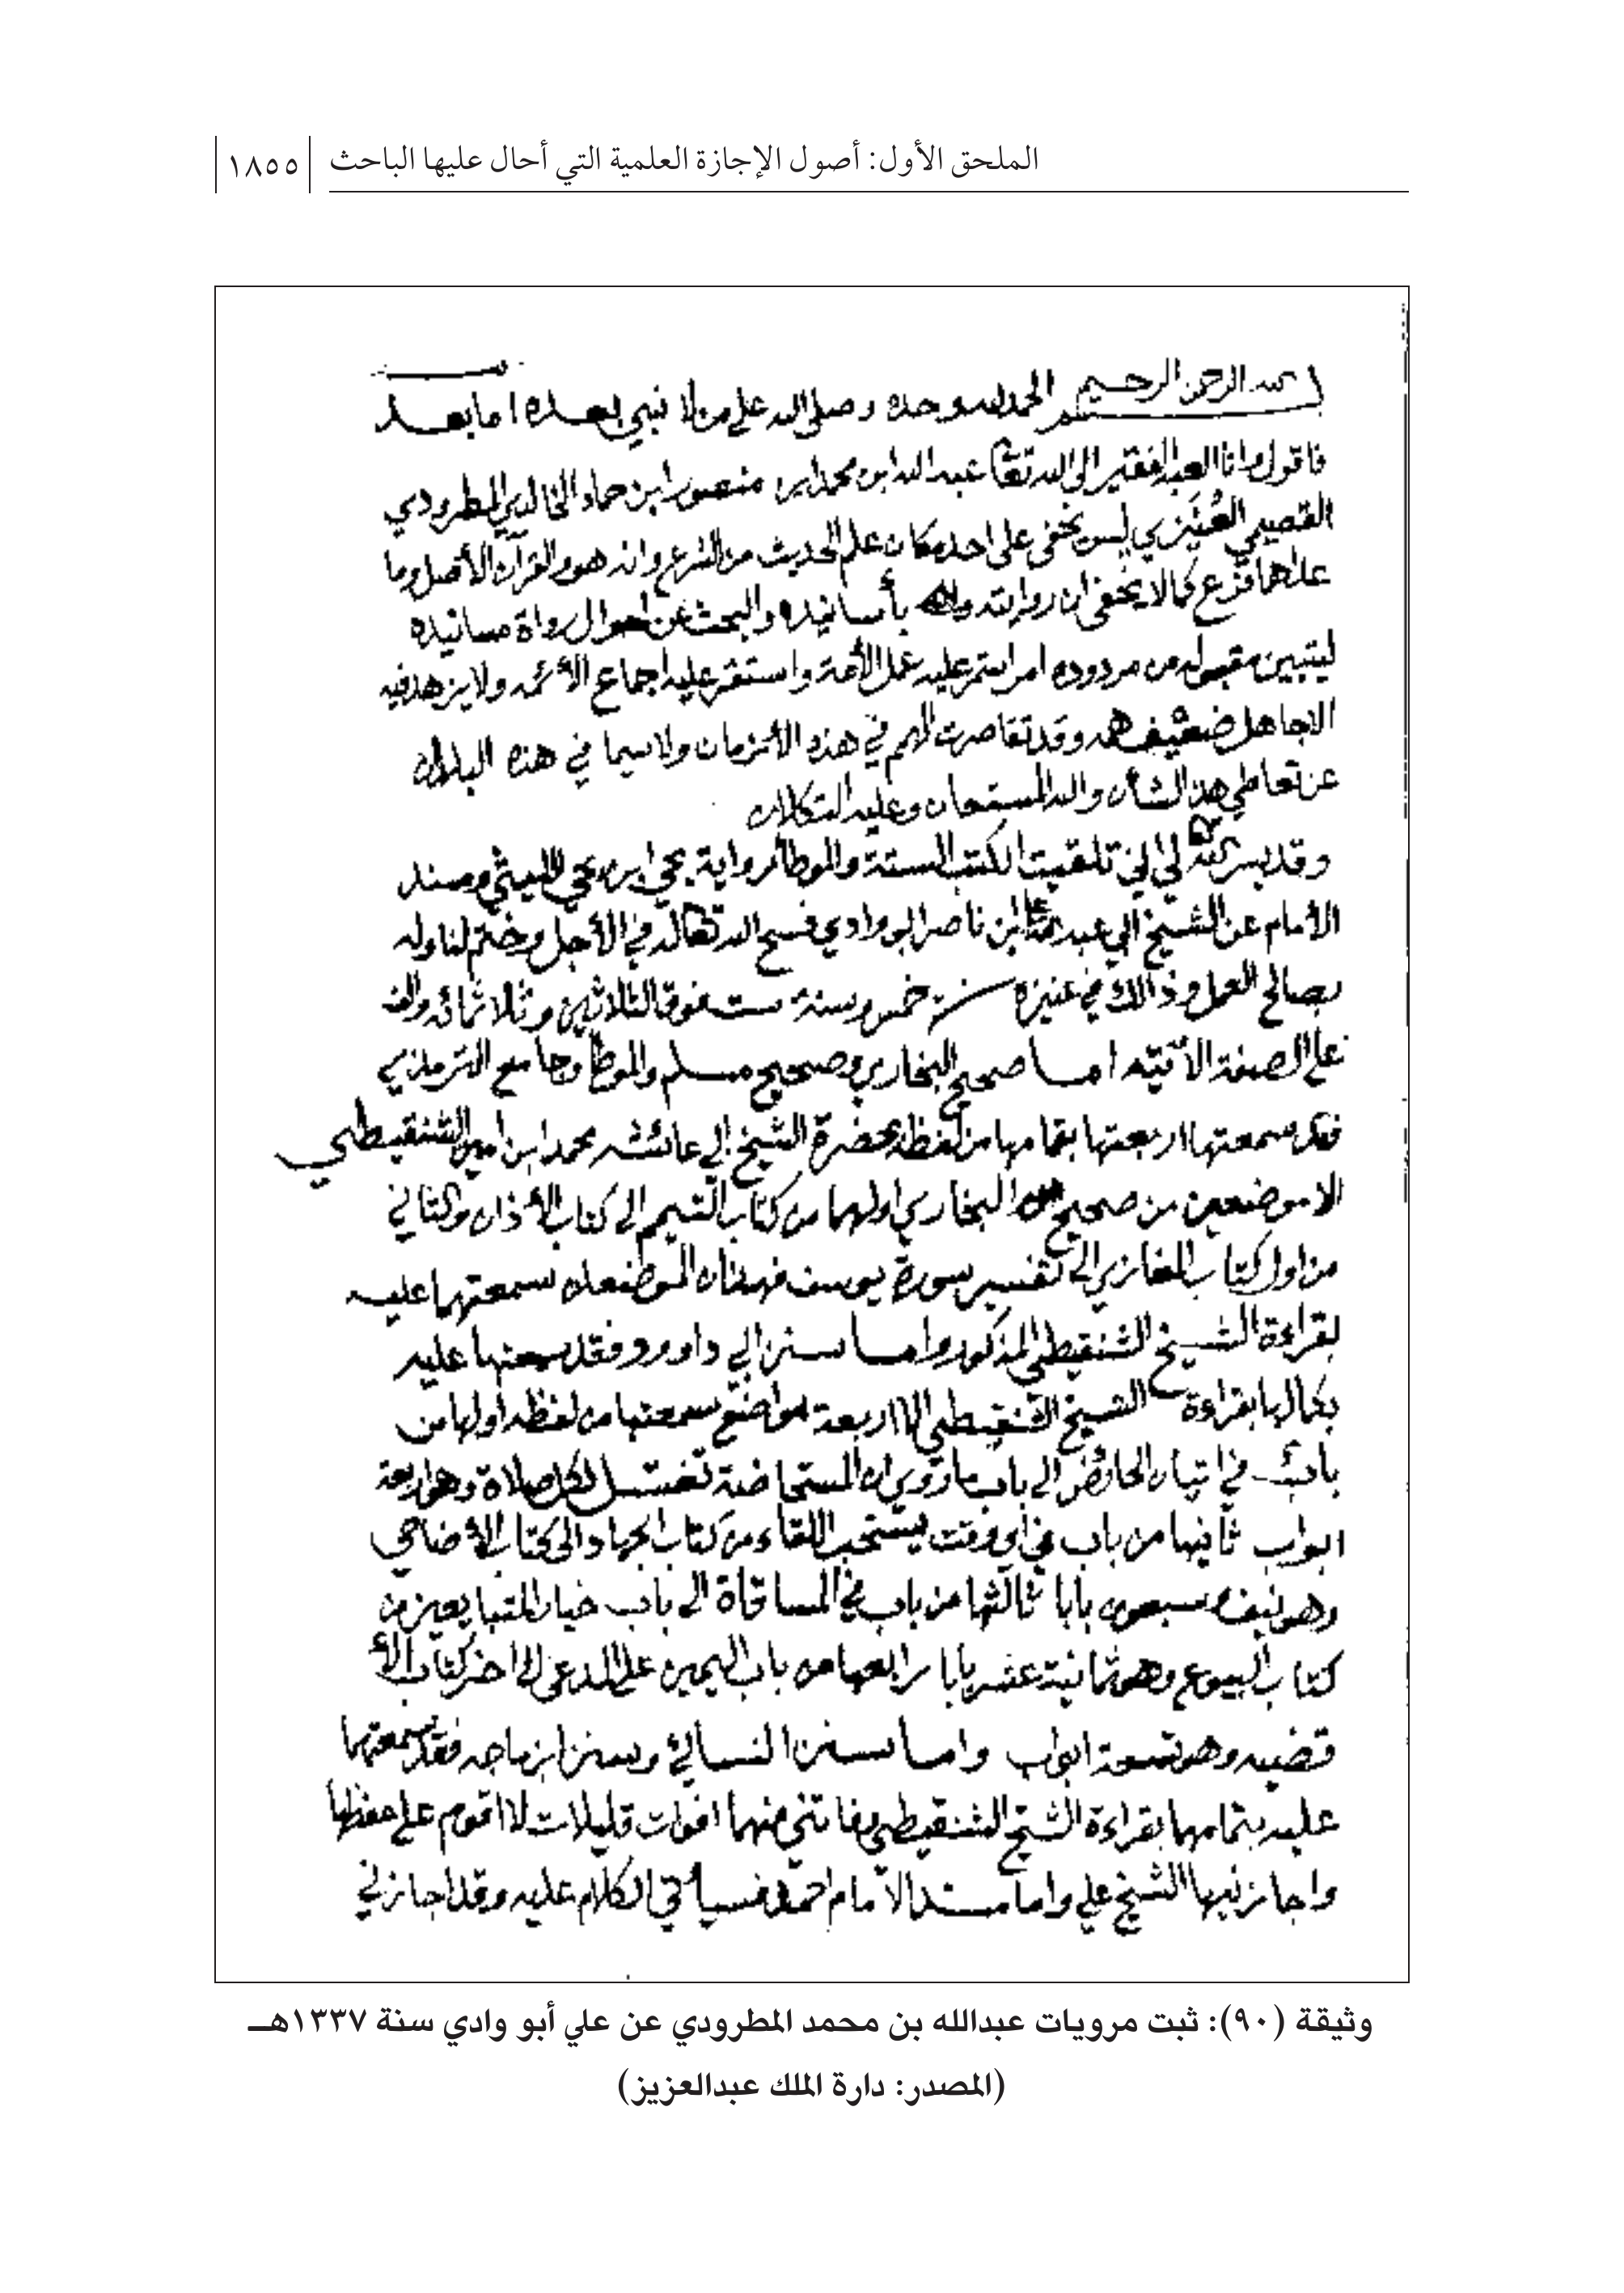 الملحق الأول: أصول الإجازة العلمية التي أحال عليها الباحث
١٨٥٥
بسم الله الرحمن الرحيم الحمد لله وحده وصلى الله على من لا نبي بعده اما بعد
فاقول وانا العبد الفقير الى الله تعا عبد الله ابن محمد ابن منصور ابن حماد الخالدي المطرودي
القصيمي العُنَيزي ليس يخفى على احد مكان علم الحديث من الشرع وانه هو والقرآن الأصل وما
عداهما فرع كما لا يخفى ان روايته بأسانيده والبحث عن احوال رواة مسانيده
ليتبين مقبوله من مردوده امر استمر عليه عمل الأمة واستقر عليه اجماع الأئمه ولا يزهد فيه
الا جاهل ضعيف وقد تقاصرت الهمم في هذه الأزمان ولا سيما في هذه البلدان
عن تعاطي هذا الشأن والله المستعان وعليه التكلان
وقد يسر الله لي اني تلقيت الكتب الستة والموطأ رواية يحي ابن يحي الليثي ومسند
الأمام عن الشيخ ابن ناصر ابو وادي فسح الله تعا له في الأجل وختم لنا وله
بصالح العمل وذالك في عنيزة سنة خمس وسنة ست فوق الثلاثين وثلاثمائه والف
على الصفة الآتيه اما صحيح البخاري وصحيح مسلم والموطأ وجامع الترمذي
فقد سمعتها اربعتها بتمامها من لفظه بحضرة الشيخ ابي عائشه محمد ابن امين الشنقيطي
الا موضعين من صحيح البخاري اولهما من كتاب التيمم الى كتاب الأذان والثاني
من اول كتاب المغازي الى تفسير سورة يوسف فهذان الموضعان سمعتهما عليه
بقراءة الشيخ الشنقيطي المذكور واما سنن ابي داوود فقد سمعتها عليه
بكمالها بقراءة الشيخ الشنقيطي الا اربعة مواضع سمعتها من لفظه اولها من
باب في اتيان الحائض الى باب ما روي ان المستحاضة تغتسل لكل صلاة وهو اربعة
ابواب ثانيها من باب في اي وقت يستحب اللقاء من كتاب الجهاد الى كتاب الأضاحي
وهو نيف وسبعون بابا ثالثها من باب في المساقاة الى باب خيار المتبايعين من
كتاب البيوع وهو ثمانية عشر بابا رابعها من باب اليمين على المدعى الى اخر كتاب الأ
قضيه وهو تسعة ابواب واما سنن النسائي وسنن ابن ماجه فقد سمعتهما
عليه بتمامهما بقراءة الشيخ الشنقيطي وفاتني منهما افوات قليلات لا اقوم على حفظها
واجازنيها الشيخ علي واما مسند الأمام احمد فسيأتي الكلام عليه وقد اجازني
وثيقة (٩٠): ثبت مرويات عبدالله بن محمد المطرودي عن علي أبو وادي سنة ١٣٣٧هـ
(المصدر: دارة الملك عبدالعزيز)